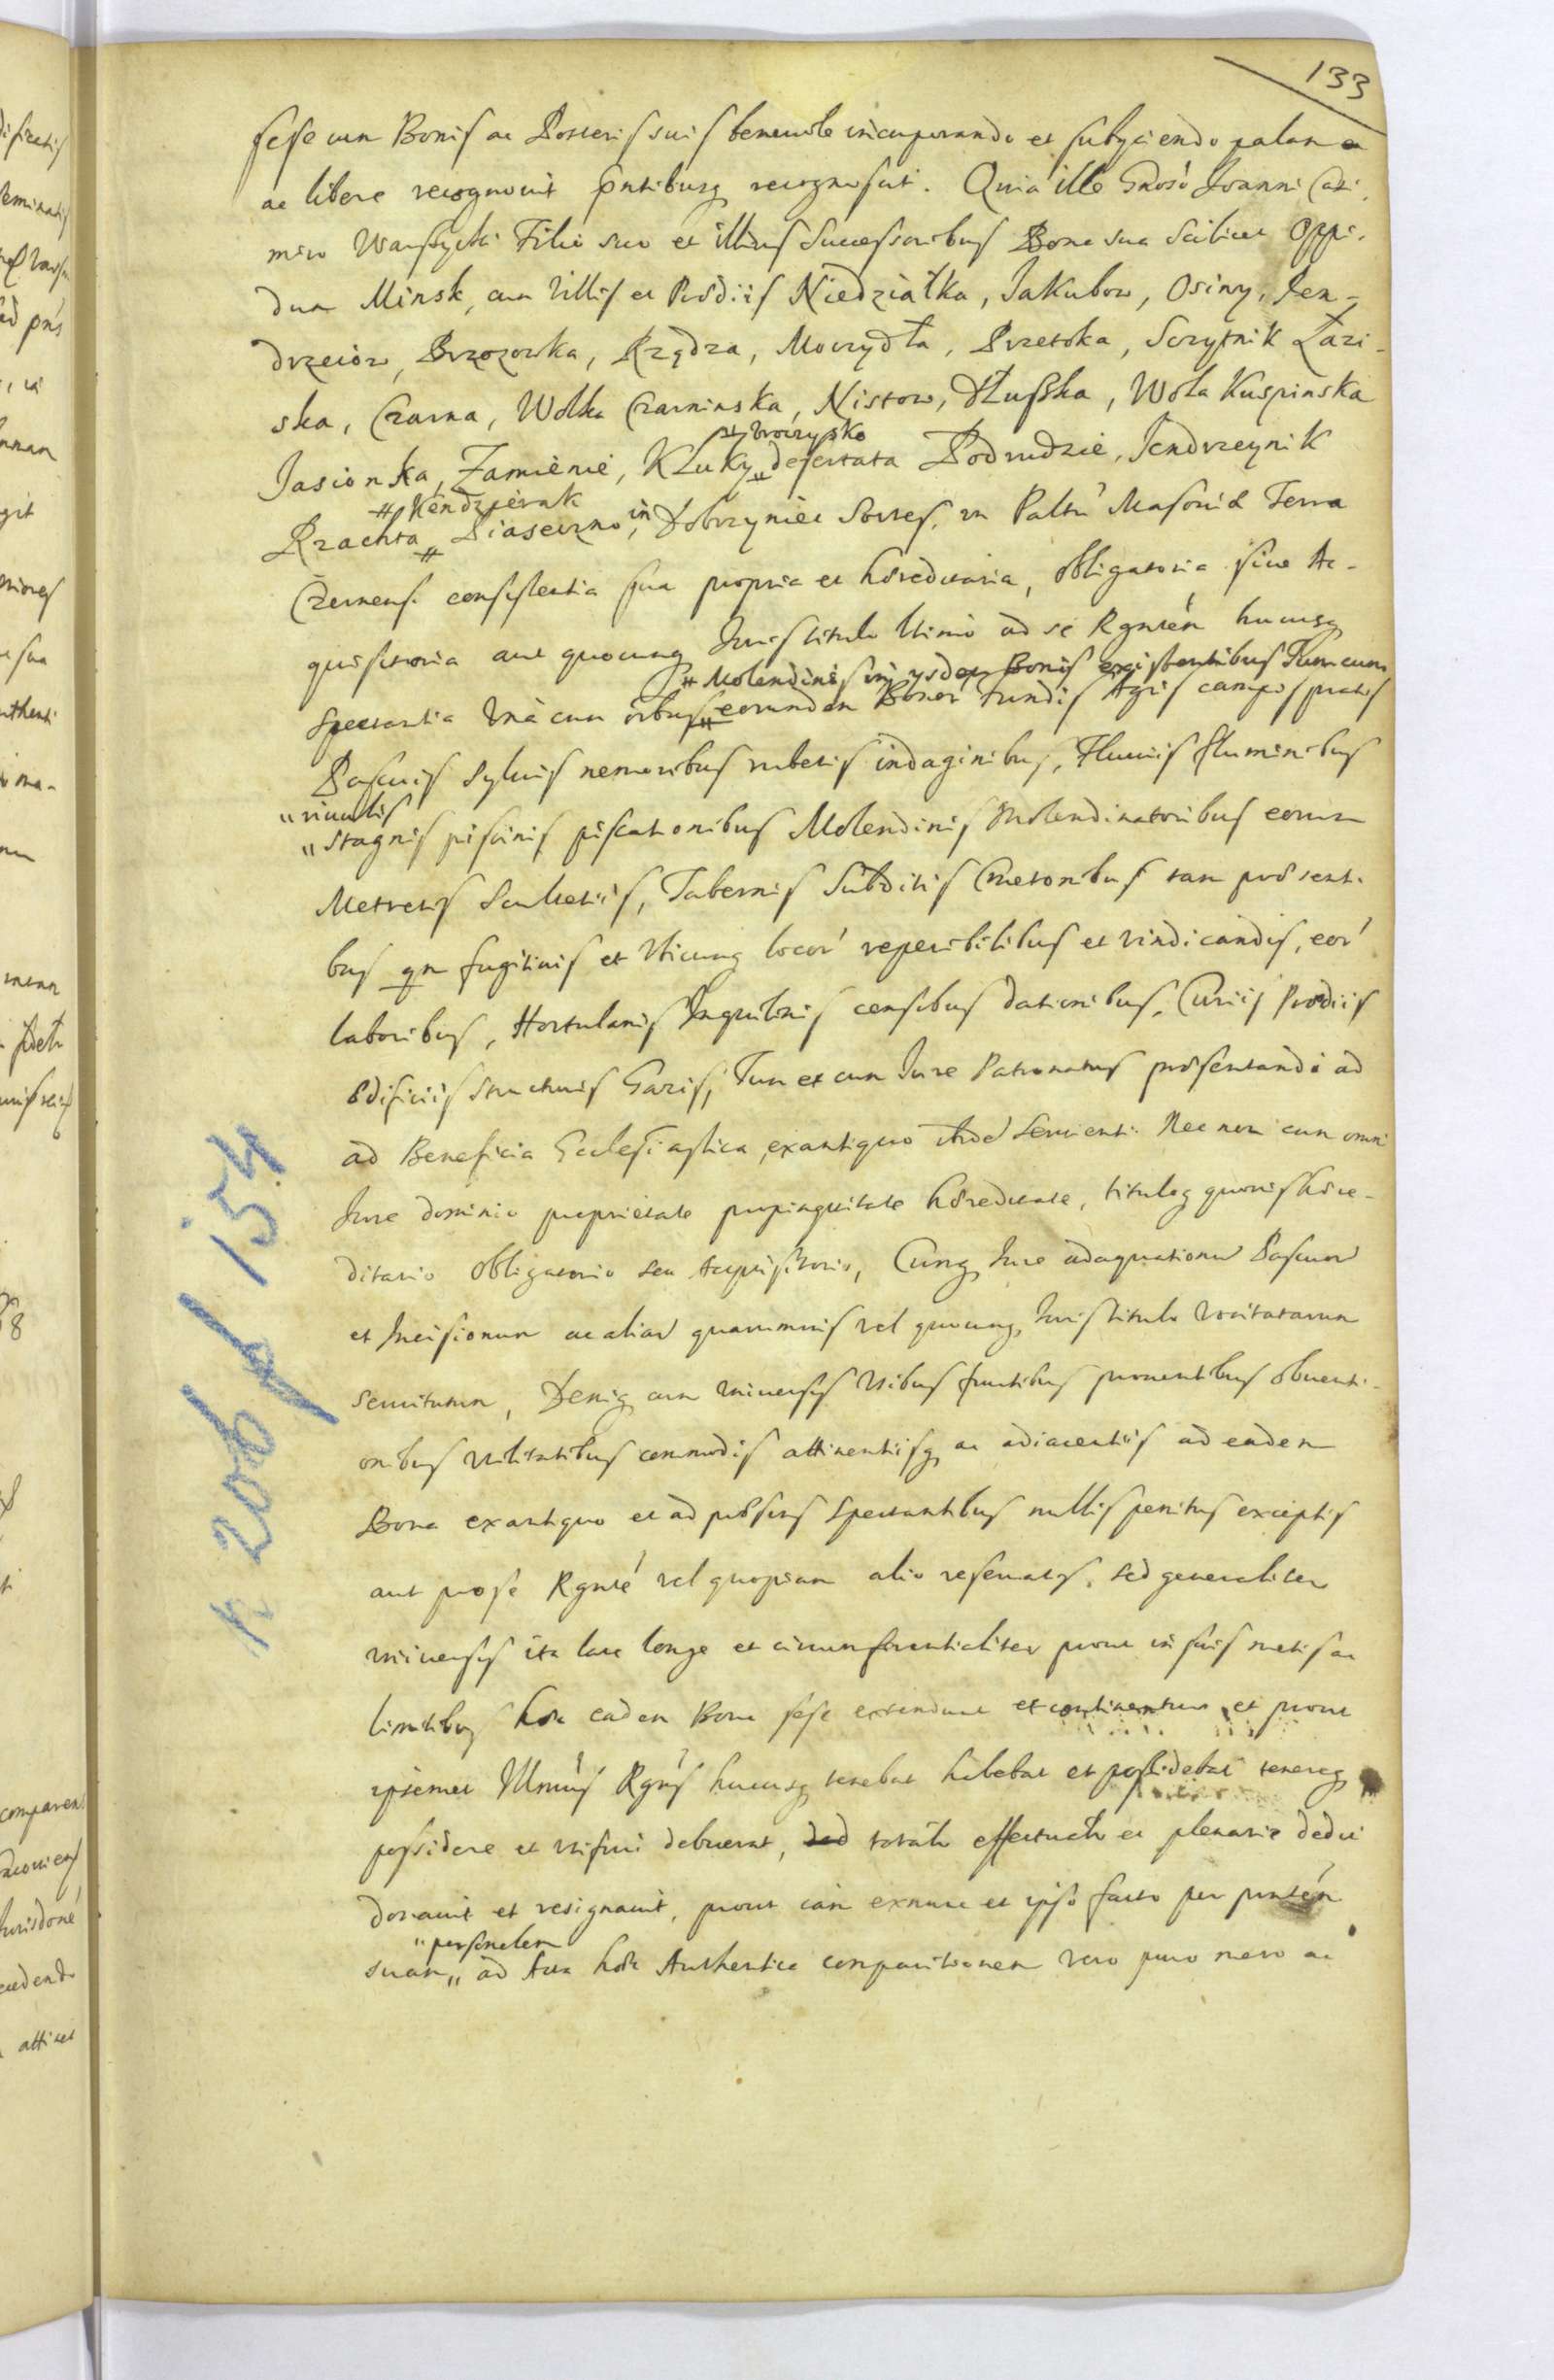 133
sese cum Bonis ac Posteris suis benevole incorporando et subyciendo palam
ac libere recognovit pntibusq recognoscit. Quia ille Gnoso Joanni Cazi
miro Warszycki Filio suo et illius Successoribus Bona sua Scilicet Oppi.
dum Minsk, cum Villis et Prædiis Niedziałka, Jakubow, Osiny, Jen-
drzeiow, Brzozowka, Rządza, Moczydła, Przetoka, Sczytnik Łazi-
ska, Czarna, Wolka Czarninska, Nistow, Dłuszka, Wola Kuspinska
et Uroczysko
Jasionka, Zamienie, Kluky deserta Podrudzie, Jendrzeynik
Kendzierak
Rzachta Piaseczno, in Dobrzyniec Sortes, in Paltu Masoviæ Terra
Czernens. consistentia sua propria et hæreditaria, obligatoria sive Ac-
quisitoria aut quocunq Juris titulo Ultimo ad se Rgntem hucusq
Molendinis in ysdem Bonis existentibus Tum cum
spectantia Unà cum oibus eorundem Bonor fundis Agris campis pratis
Pascuis sylvis nemoribus rubetis indaginibus, Fluviis fluminibus
rivulis
stagnis piscinis piscationibus Molendinis Molendinatoribus eorum
Metretis Scultetiis, Tabernis Subditis Cmetonibus tam præsenti.
bus qm fugitivis et Ubicunq locor reperibilibus et vindicandis, eor
laboribus, Hortulanis Inquilinis censibus dationibus, Curiis Prædiis
ædificiis structuris Gazis, Tum et cum Jure Patronatus præsentandi ad
ad Beneficia Ecclesiastica, ex antiquo Servienti. Nec non cum omni
Jure dominio proprietate propinquitate hæreditate, tituloq quovis hære-
ditario obligatorio seu Acquisitorio, Cumq Jure adaquationum Pascuor
et Incisionum ac aliar quarumvis vel quocunq, Juris titulo vocitatarum
servitutum, Deniq cum Universis Usibus fructibus proventibus obventi-
onibus utilitatibus commodis attinentiisq ac adiacentiis ad eadem
Bona ex antiquo et ad præsens spectantibus nullis penitus exceptis
aut pro se Rgnte vel quopiam alio reservatis, sed generaliter
universis ita late longe et circumferentialiter prout in suis metis ac
limitibus eadem Bona sese extendunt et continentur et prout
ipsemet Rgns hucusq tenebat habebat et possidebat tenereq
possidere et utifrui debuerat, ded effectualr et plenarie dedit
donavit et resignavit, prout iam exnunc et ipso facto per pntem
personalem
suam ad Acta Authentica comparitionem vero puro mero ac
K 206 f 154